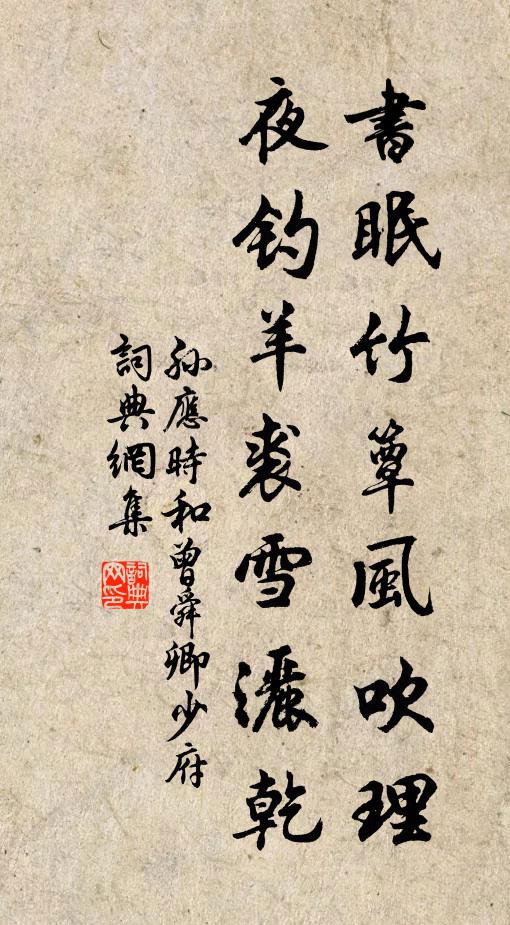 書眠竹簟風吹理
夜釣羊裘雪灑乾
孫應時和曾舜卿少府
詞典網集
詞典
网印